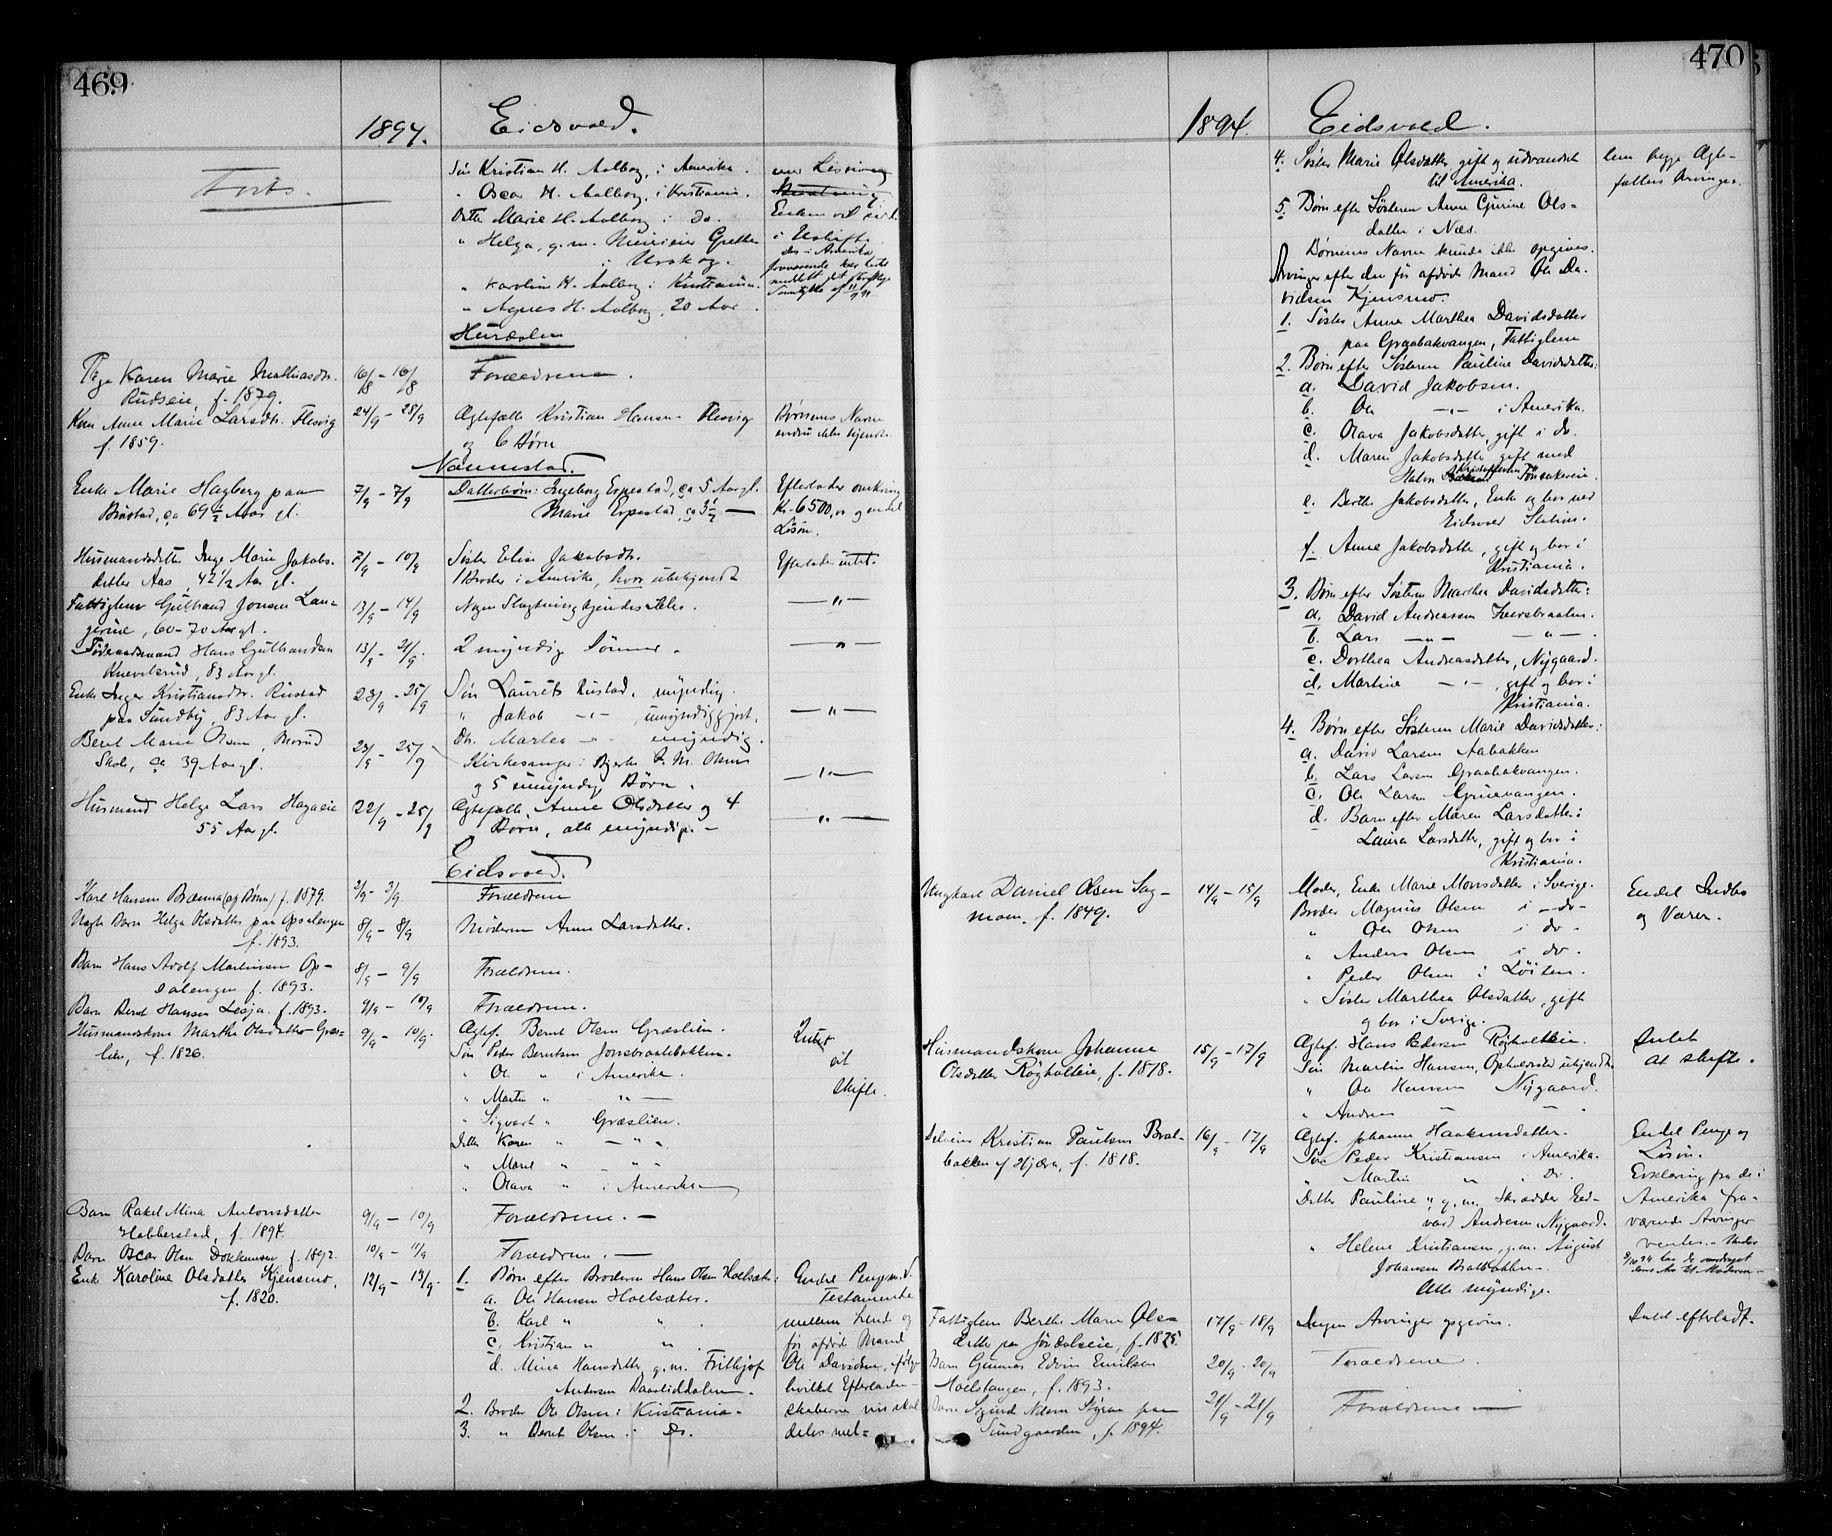 469
1894.
Eidsvold.
Forts.
Søn Kristian H. Aalborg, i Amerika.
" Oscar H. Aalborg, i Kristiania.
Dtr. Marie H. Aalborg i do.
" Helga, g.m.
i Urskog.
" Karoline H. Aalborg i Kristiania.
" Agnes H. Aalborg, 20 Aar.
Enken vil sidde
i Uskift.
Hurdalen
Pige Karen Marie Mathiasdtr.
Rudseie, f. 1879.
16/8 - 16/8
Forældrene.
Kone Anne Marie Larsdtr. Flesvig
f. 1859.
24/9 - 28/9
Ægtefælle Kristian Hansen Flesvig
og 6 Børn
Børnenes Navne
endnu ikke kjendt.
Nannestad.
Enke Marie Hagberg paa
Bustad, ca 69 1/2 Aar gl.
7/9 - 7/9
Datterbørn: Ingeborg Espestad, ca 5 Aar gl.
Marie Espestad, ca 3 1/2 —
Efterlader omkring
Kr. 6500,00 og endel
Løsøre.
Husmandsdatter Inge Marie Jakobs-
datter Aas, 42 1/2 Aar gl.
7/9 - 10/9
Søster Elise Jakobsdtr.
1 Broder i Amerika, hvor ubekjendt
Efterlader intet.
Fattiglem Gulbrand Jonsen Lan-
gerud, 60-70 Aar gl.
13/9 - 14/9
Nogen Slægtning kjendes ikke.
— " —
Føderaadsmand Hans Gulbrandsen
Knevelsrud, 83 Aar gl.
13/9 - 21/9.
2 myndige Sønner.
— " —
Enke Inger Kristiansdtr. Rustad
paa Sundby, 83 Aar gl.
23/9 - 25/9
Søn Laurits Rustad, myndig.
" Jakob — " — , umyndiggjort.
Dtr. Marthea — " — myndig.
— " —
Beret Marie Olsen, Morud
Skole, ca 39 Aar gl.
23/9 - 25/9
Kirkesanger i Bjerke O. M. Olsen
og 5 umyndige Børn.
— " —
Husmand Helge Lars Hagaeie
55 Aar gl.
22/9 - 25/9
Ægtefælle, Anne Olsdatter og 4
Børn, alle myndige. —
— " —
Eidsvold.
Karl Hansen Brænna (af Bønn) f. 1879.
3/9 - 3/9
Forældrene
Uægte Barn Helga Olsdatter paa Opsalengen
f. 1893.
8/9 - 8/9
Moderen Anne Larsdatter.
Barn Hans Adolf Martinsen Op-
salengen f. 1893.
8/9 - 9/9
Forældrene.
Barn Bernt Hansen Lesja f. 1893.
9/9 - 10/9
Forældrene.
Husmandskone Marthe Olsdatter Græs-
lien, f. 1826.
9/9 - 10/9
Ægtef. Bernt Olsen Græslien.
Søn Peder Berntsen Jonsbraatebakken.
" Ole " i Amerika.
" Martin " " —
" Sigvart " Græslien.
Datter Karen " — " —
" Marie " — " —
" Olava " i Amerika
Intet
at
skifte.
Barn Rakel Mina Antonsdatter
Habberstad, f. 1894.
9/9 - 10/9
Forældrene. —
Barn Oscar Olsen Dokkemoen f. 1892.
10/9 - 11/9
Forældrene. —
Enke Karoline Olsdatter Kjensmo,
f. 1820.
12/9 - 13/9.
1. Børn efter Broderen Hans Olsen Holsæter:
a. Ole Hansen Holsæter.
b. Karl " "
c. Kristian " "
d. Mina Hansdatter, g.m. Frithjof
Andersen Baasliddalen.
2. Broder Ole Olsen i Kristiania.
3. " Bernt Olsen i do.
Endel Penge m.v.
Testamente
mellem hende og
før afdøde Mand
Ole Davidsen, ifølge
hvilket Efterladen-
skaberne vis skal
deles mel-
470
1894.
Eidsvold.
4. Søster Marie Olsdatter gift og udvandret
til Amerika.
lem begge Ægte-
fællers Arvinger.
5. Børn efter Søsteren Anne Gurine Ols-
datter i Næs.
Børnenes Navne kunde ikke opgives.
Arvinger efter den før afdøde Mand Ole Da-
vidsen Kjensmo.
1. Søster Anne Marthea Davidsdatter
paa Graabakvangen, Fattiglem
2. Børn efter Søsteren Pauline Davidsdatter:
a. David Jakobsen.
b. Ole — " — i Amerika.
c. Olava Jakobsdatter, gift i do.
d. Maren Jakobsdatter gift med
Halvor Kristoffersen Tønsakereie.
e. Berthe Jakobsdatter, Enke og bor ved
Eidsvold Station.
f. Anne Jakobsdatter, gift og bor i
Kristiania.
3. Børn efter Søsteren Marthea Davidsdatter:
a. David Andreassen Kversbraaten.
b. Lars — " — — " — .
c. Dorthea Andreasdatter, Nygaard.
d. Martine — " — , gift og bor i
Kristiania.
4. Børn efter Søsteren Marie Davidsdatter:
a. David Larsen Aabakken
b. Lars Larsen Graabakvangen.
c. Ole Larsen Gruevangen.
d. Barn efter Maren Larsdatter:
Laura Larsdatter, gift og bor i
Kristiania.
Ungkarl Daniel Olsen Sag-
moen, f. 1849.
14/9 - 15/9
Moder, Enke Marie Monsdatter i Sverige.
Broder Magnus Olsen i — do —
" Ole Olsen i do.
" Anders Olsen i do.
" Peder Olsen i Løiten.
" Søster Marthea Olsdatter, gift
og bor i Sverige.
Endel Indbo
og Varer.
Husmandskone Johanne
Olsdatter Røgholteie, f. 1818.
15/9 - 17/9
Ægtef. Hans Pedersen Røgholteie.
Søn Martin Hansen, Opholdssted ubekjendt.
" Ole Hansen Nygaard.
" Andreas " "
Intet
at skifte.
Kristian Paulsen Bræl-
bakken af Hjera, f. 1818.
16/9 - 17/9
Ægtef. Johanne Haakensdatter.
Søn Peder Kristiansen i Amerika.
" Martin " i Do.
Datter Pauline ", g.m. Skrædder Ed-
vard Andresen Nygaard.
" Helene Kristiansen, g.m. August
Johansen Brælbakken —
Alle myndige.
Endel Penge og
Løsøre.
Erklæring fra de i
Amerika fra-
værende Arvinger
ventes. —
Fattiglem Berthe Marie Ols-
datter paa Jøndalseie, f. 1825.
17/9 - 18/9
Ingen Arvinger opgivne.
Intet efterladt.
Barn Gunnar Edvin Emilsen
Holstangen, f. 1893.
20/9 - 20/9
Forældrene.
Barn Sigurd Nilsen Styren paa
Sundgaarden, f. 1894.
21/9 - 21/9
Forældrene —